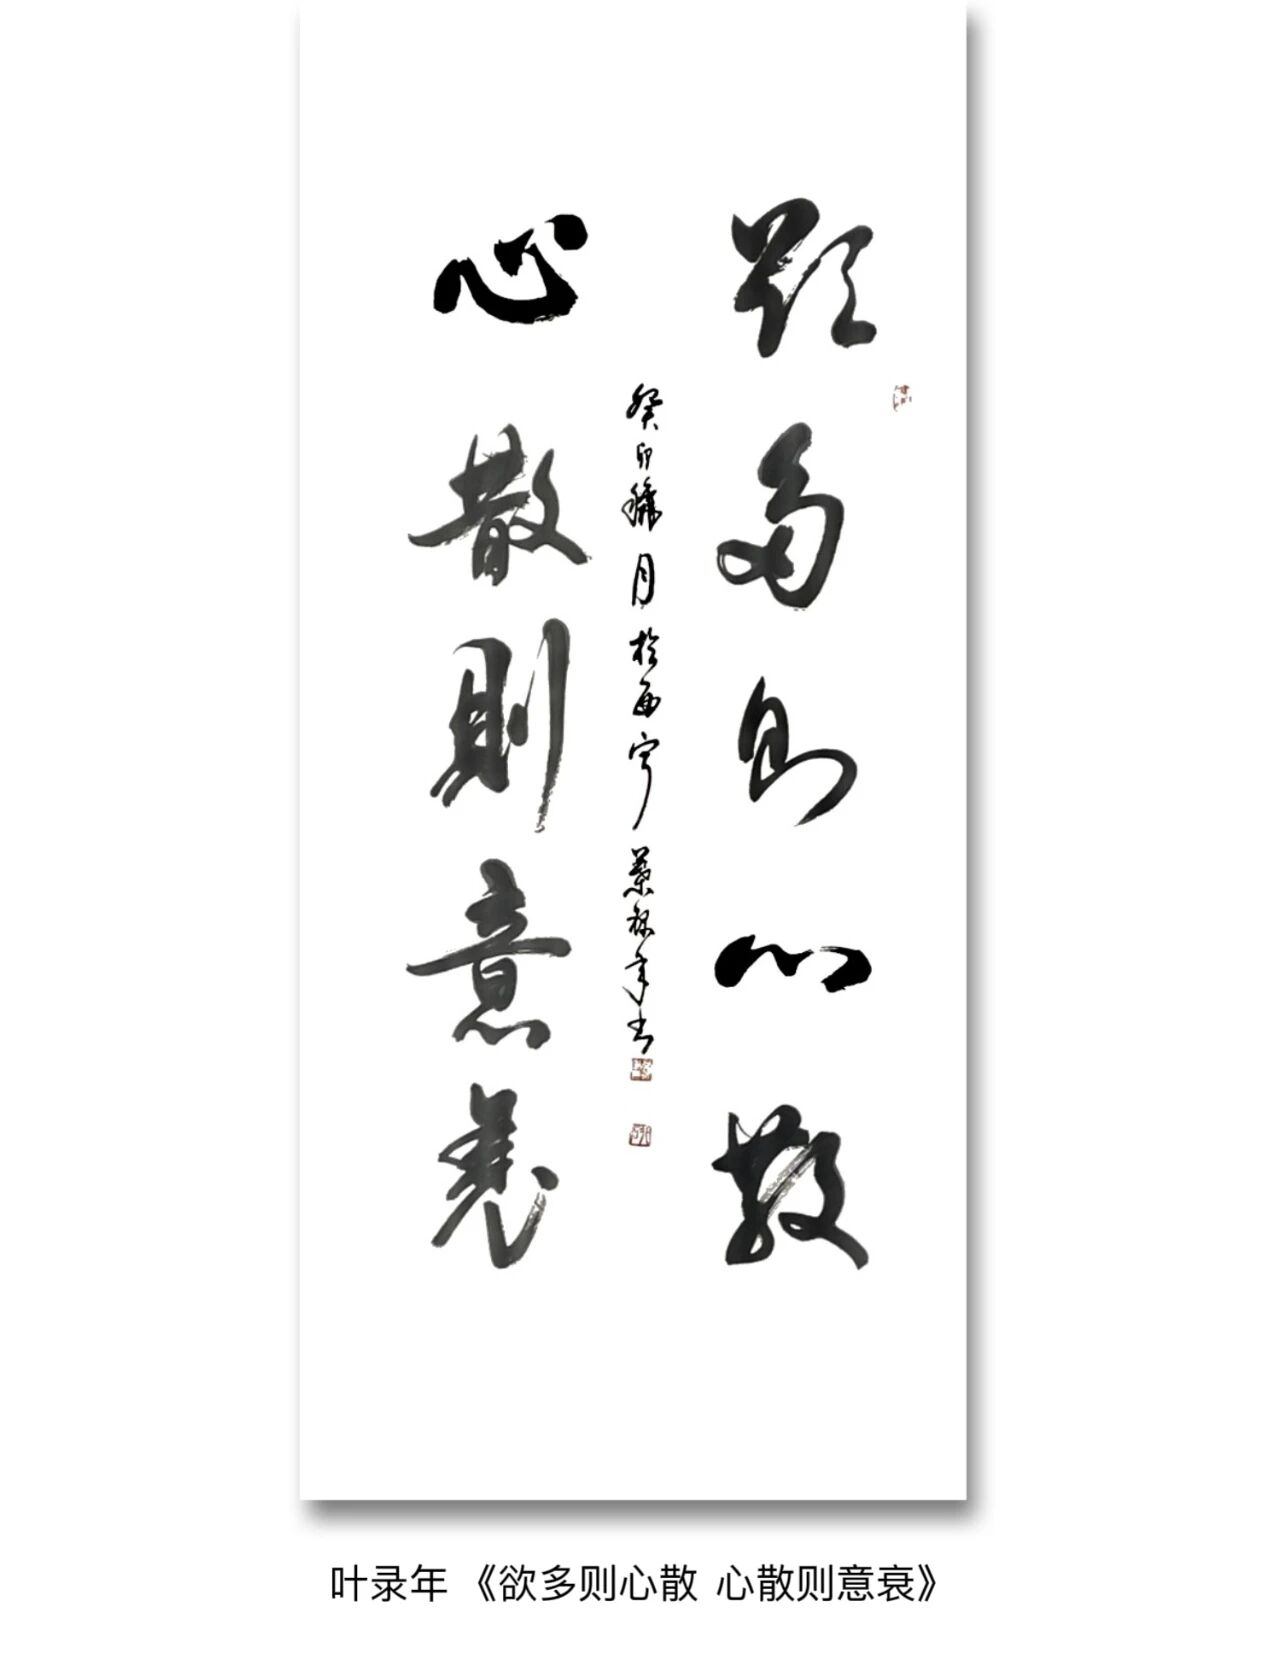 欲多則心散
心散則意衰
癸卯穐月於西寧葉录年书
叶录年 《欲多则心散 心散则意衰》